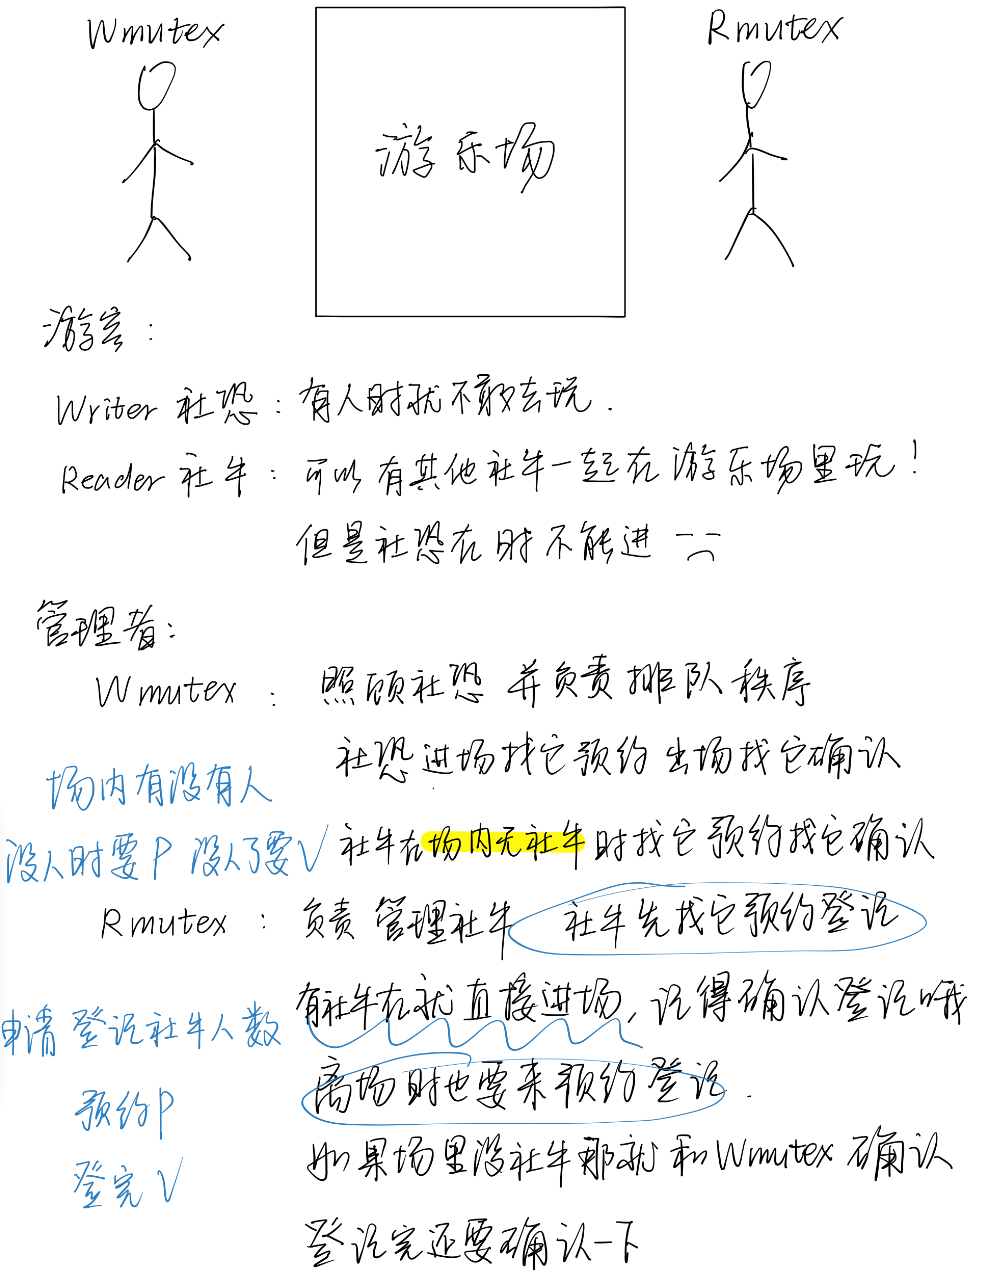 Wmutex
Rmutex
游乐场
游客：
Writer 社恐：有人时就不敢去玩.
Reader 社牛：可以有其他社牛一起在游乐场里玩！
但是社恐在时不能进
管理者：
Wmutex：照顾社恐 并负责排队秩序
社恐进场找它预约 出场找它确认
场内有没有人
没人时要P 没人了要V
社牛在场内无社牛时找它预约找它确认
Rmutex：负责管理社牛 社牛先找它预约登记
有社牛在就直接进场，记得确认登记哦
申请登记社牛人数
离场时也要来预约登记.
预约P
如果场里没社牛那就和Wmutex确认
登完V
登记完还要确认一下